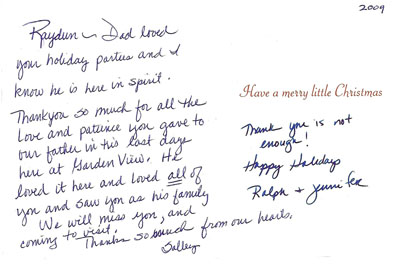 2009
Raydun ~ Dad loved
your holiday parties and I
know he is here in spirit.
Thankyou so much for all the
love and patience you gave to
our father in his last days
here at Garden View. He
loved it here and loved all of
you and saw you as his family
We will miss you, and
coming to visit.
Thanks so much from our hearts.
Salley
Have a merry little Christmas
Thank you is not
enough!
Happy Holidays
Ralph + Jennifer